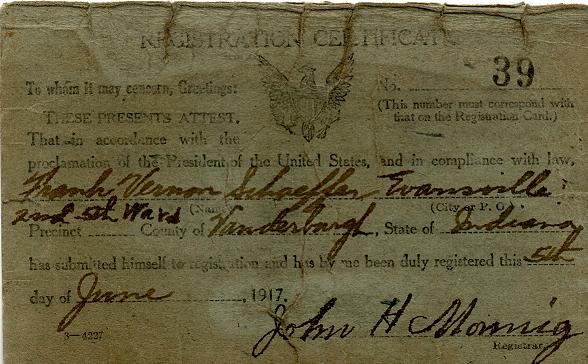 REGISTRATION CERTIFICATE
To whom it may concern, Greetings: No. 39
THESE PRESENTS ATTEST, (This number must correspond with that on the Registration Card.)
That in accordance with the
proclamation of the President of the United States, and in compliance with law,
Frank Vernon Schaeffer Evansville
(Name) (City or P. O.)
2nd 5th Ward
Precinct County of Vanderburgh, State of Indiana
has submitted himself to registration and has by me been duly registered this 5th
day of June, 1917.
John H Monnig
Registrar.
3—4227